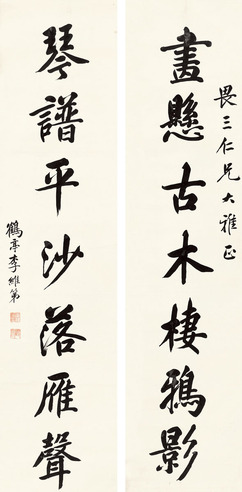 畏三仁兄大雅正
畫懸古木棲鴉影
琴譜平沙落雁聲
鶴亭李維第